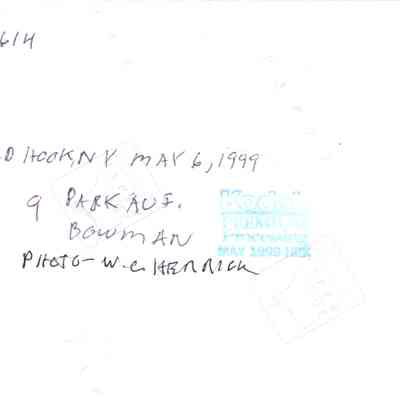 614
D HOOK, N Y MAY 6, 1999
9 PARK AVE.
BOWMAN
PHOTO - W. C. HERRICK
Kodak
PREMIUM
Processing
MAY 1999